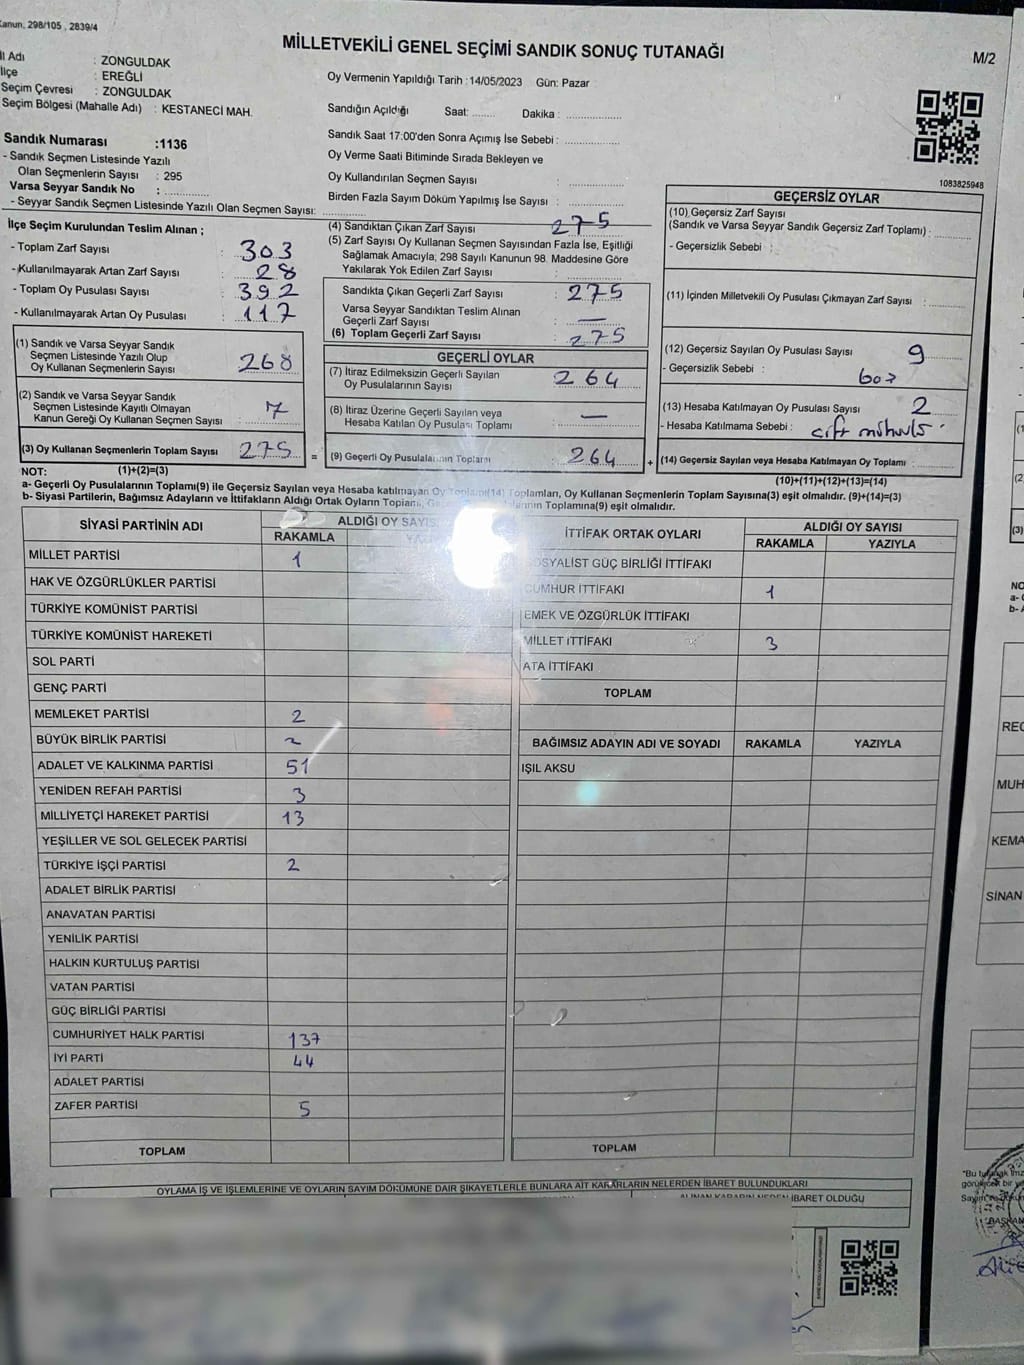 Kanun, 298/105 , 2839/4
MİLLETVEKİLİ GENEL SEÇİMİ SANDIK SONUÇ TUTANAĞI
M/2
İl Adı : ZONGULDAK
İlçe : EREĞLİ
Seçim Çevresi : ZONGULDAK
Seçim Bölgesi (Mahalle Adı) : KESTANECİ MAH.
Sandık Numarası :1136
- Sandık Seçmen Listesinde Yazılı
Olan Seçmenlerin Sayısı : 295
Varsa Seyyar Sandık No : ............
- Seyyar Sandık Seçmen Listesinde Yazılı Olan Seçmen Sayısı: ............
Oy Vermenin Yapıldığı Tarih :14/05/2023 Gün: Pazar
Sandığın Açıldığı Saat: ........ Dakika : ..................
Sandık Saat 17:00'den Sonra Açımış İse Sebebi : ..................
Oy Verme Saati Bitiminde Sırada Bekleyen ve
Oy Kullandırılan Seçmen Sayısı : ..................
Birden Fazla Sayım Döküm Yapılmış İse Sayısı : ..................
1083825948
İlçe Seçim Kurulundan Teslim Alınan ;
- Toplam Zarf Sayısı : 303
- Kullanılmayarak Artan Zarf Sayısı : 28
- Toplam Oy Pusulası Sayısı : 392
- Kullanılmayarak Artan Oy Pusulası : 117
(1) Sandık ve Varsa Seyyar Sandık
Seçmen Listesinde Yazılı Olup
Oy Kullanan Seçmenlerin Sayısı : 268
(2) Sandık ve Varsa Seyyar Sandık
Seçmen Listesinde Kayıtlı Olmayan
Kanun Gereği Oy Kullanan Seçmen Sayısı : 7
(3) Oy Kullanan Seçmenlerin Toplam Sayısı : 275
(1)+(2)=(3)
(4) Sandıktan Çıkan Zarf Sayısı : 275
(5) Zarf Sayısı Oy Kullanan Seçmen Sayısından Fazla İse, Eşitliği
Sağlamak Amacıyla; 298 Sayılı Kanunun 98. Maddesine Göre
Yakılarak Yok Edilen Zarf Sayısı :
Sandıkta Çıkan Geçerli Zarf Sayısı : 275
Varsa Seyyar Sandıktan Teslim Alınan
Geçerli Zarf Sayısı : —
(6) Toplam Geçerli Zarf Sayısı : 275
GEÇERLİ OYLAR
(7) İtiraz Edilmeksizin Geçerli Sayılan
Oy Pusulalarının Sayısı : 264
(8) İtiraz Üzerine Geçerli Sayılan veya
Hesaba Katılan Oy Pusulası Toplamı : —
= (9) Geçerli Oy Pusulalarının Toplamı : 264 +
GEÇERSİZ OYLAR
(10) Geçersiz Zarf Sayısı
(Sandık ve Varsa Seyyar Sandık Geçersiz Zarf Toplamı) : ............
- Geçersizlik Sebebi :
(11) İçinden Milletvekili Oy Pusulası Çıkmayan Zarf Sayısı : ............
(12) Geçersiz Sayılan Oy Pusulası Sayısı : 9
- Geçersizlik Sebebi : boş
(13) Hesaba Katılmayan Oy Pusulası Sayısı : 2
- Hesaba Katılmama Sebebi : çift mühür
(14) Geçersiz Sayılan veya Hesaba Katılmayan Oy Toplamı : ............
(10)+(11)+(12)+(13)=(14)
NOT:
a- Geçerli Oy Pusulalarının Toplamı(9) ile Geçersiz Sayılan veya Hesaba katılmayan Oy Toplamı(14) Toplamları, Oy Kullanan Seçmenlerin Toplam Sayısına(3) eşit olmalıdır. (9)+(14)=(3)
b- Siyasi Partilerin, Bağımsız Adayların ve İttifakların Aldığı Ortak Oyların Toplamı, Toplamına(9) eşit olmalıdır.
SİYASİ PARTİNİN ADI
ALDIĞI OY SAYISI
RAKAMLA YAZIYLA
MİLLET PARTİSİ 1
HAK VE ÖZGÜRLÜKLER PARTİSİ
TÜRKİYE KOMÜNİST PARTİSİ
TÜRKİYE KOMÜNİST HAREKETİ
SOL PARTİ
GENÇ PARTİ
MEMLEKET PARTİSİ 2
BÜYÜK BİRLİK PARTİSİ 2
ADALET VE KALKINMA PARTİSİ 51
YENİDEN REFAH PARTİSİ 3
MİLLİYETÇİ HAREKET PARTİSİ 13
YEŞİLLER VE SOL GELECEK PARTİSİ
TÜRKİYE İŞÇİ PARTİSİ 2
ADALET BİRLİK PARTİSİ
ANAVATAN PARTİSİ
YENİLİK PARTİSİ
HALKIN KURTULUŞ PARTİSİ
VATAN PARTİSİ
GÜÇ BİRLİĞİ PARTİSİ
CUMHURİYET HALK PARTİSİ 137
İYİ PARTİ 44
ADALET PARTİSİ
ZAFER PARTİSİ 5
TOPLAM
İTTİFAK ORTAK OYLARI
ALDIĞI OY SAYISI
RAKAMLA YAZIYLA
SOSYALİST GÜÇ BİRLİĞİ İTTİFAKI
CUMHUR İTTİFAKI 1
EMEK VE ÖZGÜRLÜK İTTİFAKI
MİLLET İTTİFAKI 3
ATA İTTİFAKI
TOPLAM
BAĞIMSIZ ADAYIN ADI VE SOYADI RAKAMLA YAZIYLA
IŞIL AKSU
TOPLAM
OYLAMA İŞ VE İŞLEMLERİNE VE OYLARIN SAYIM DÖKÜMÜNE DAİR ŞİKAYETLERLE BUNLARA AİT KARARLARIN NELERDEN İBARET BULUNDUKLARI
ALINAN KARARIN NEDEN İBARET OLDUĞU
(1
(2
(3)
NO
a- G
b- A
REC
MUH
KEMA
SİNAN
"Bu
BAŞKAN